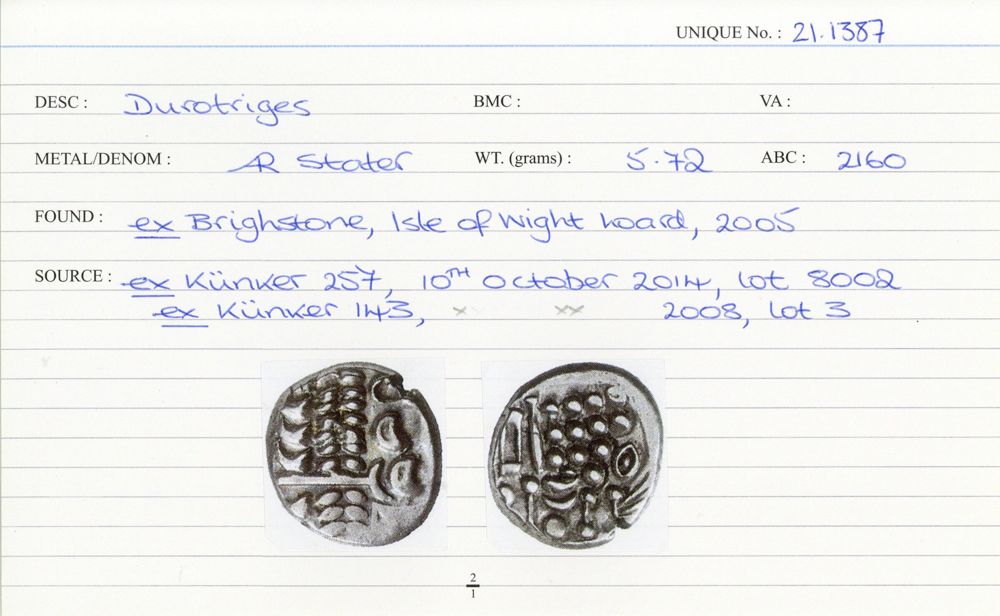 UNIQUE No. : 21.1387
DESC : Durotriges BMC : VA :
METAL/DENOM : AR Stater WT. (grams) : 5.72 ABC : 2160
FOUND : ex Brighstone, Isle of Wight hoard, 2005
SOURCE : ex Künker 257, 10TH October 2014, lot 8002
ex Künker 143, x xx 2008, lot 3
2
1